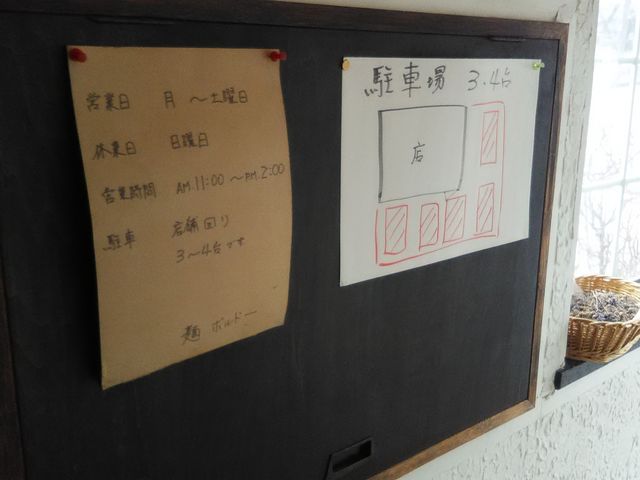 営業日 月 ～土曜日
休業日 日曜日
営業時間 AM.11:00 ～PM.2:00
駐車 店舗回り
3～4台です
麺 ボルドー
駐車場 3.4台
店